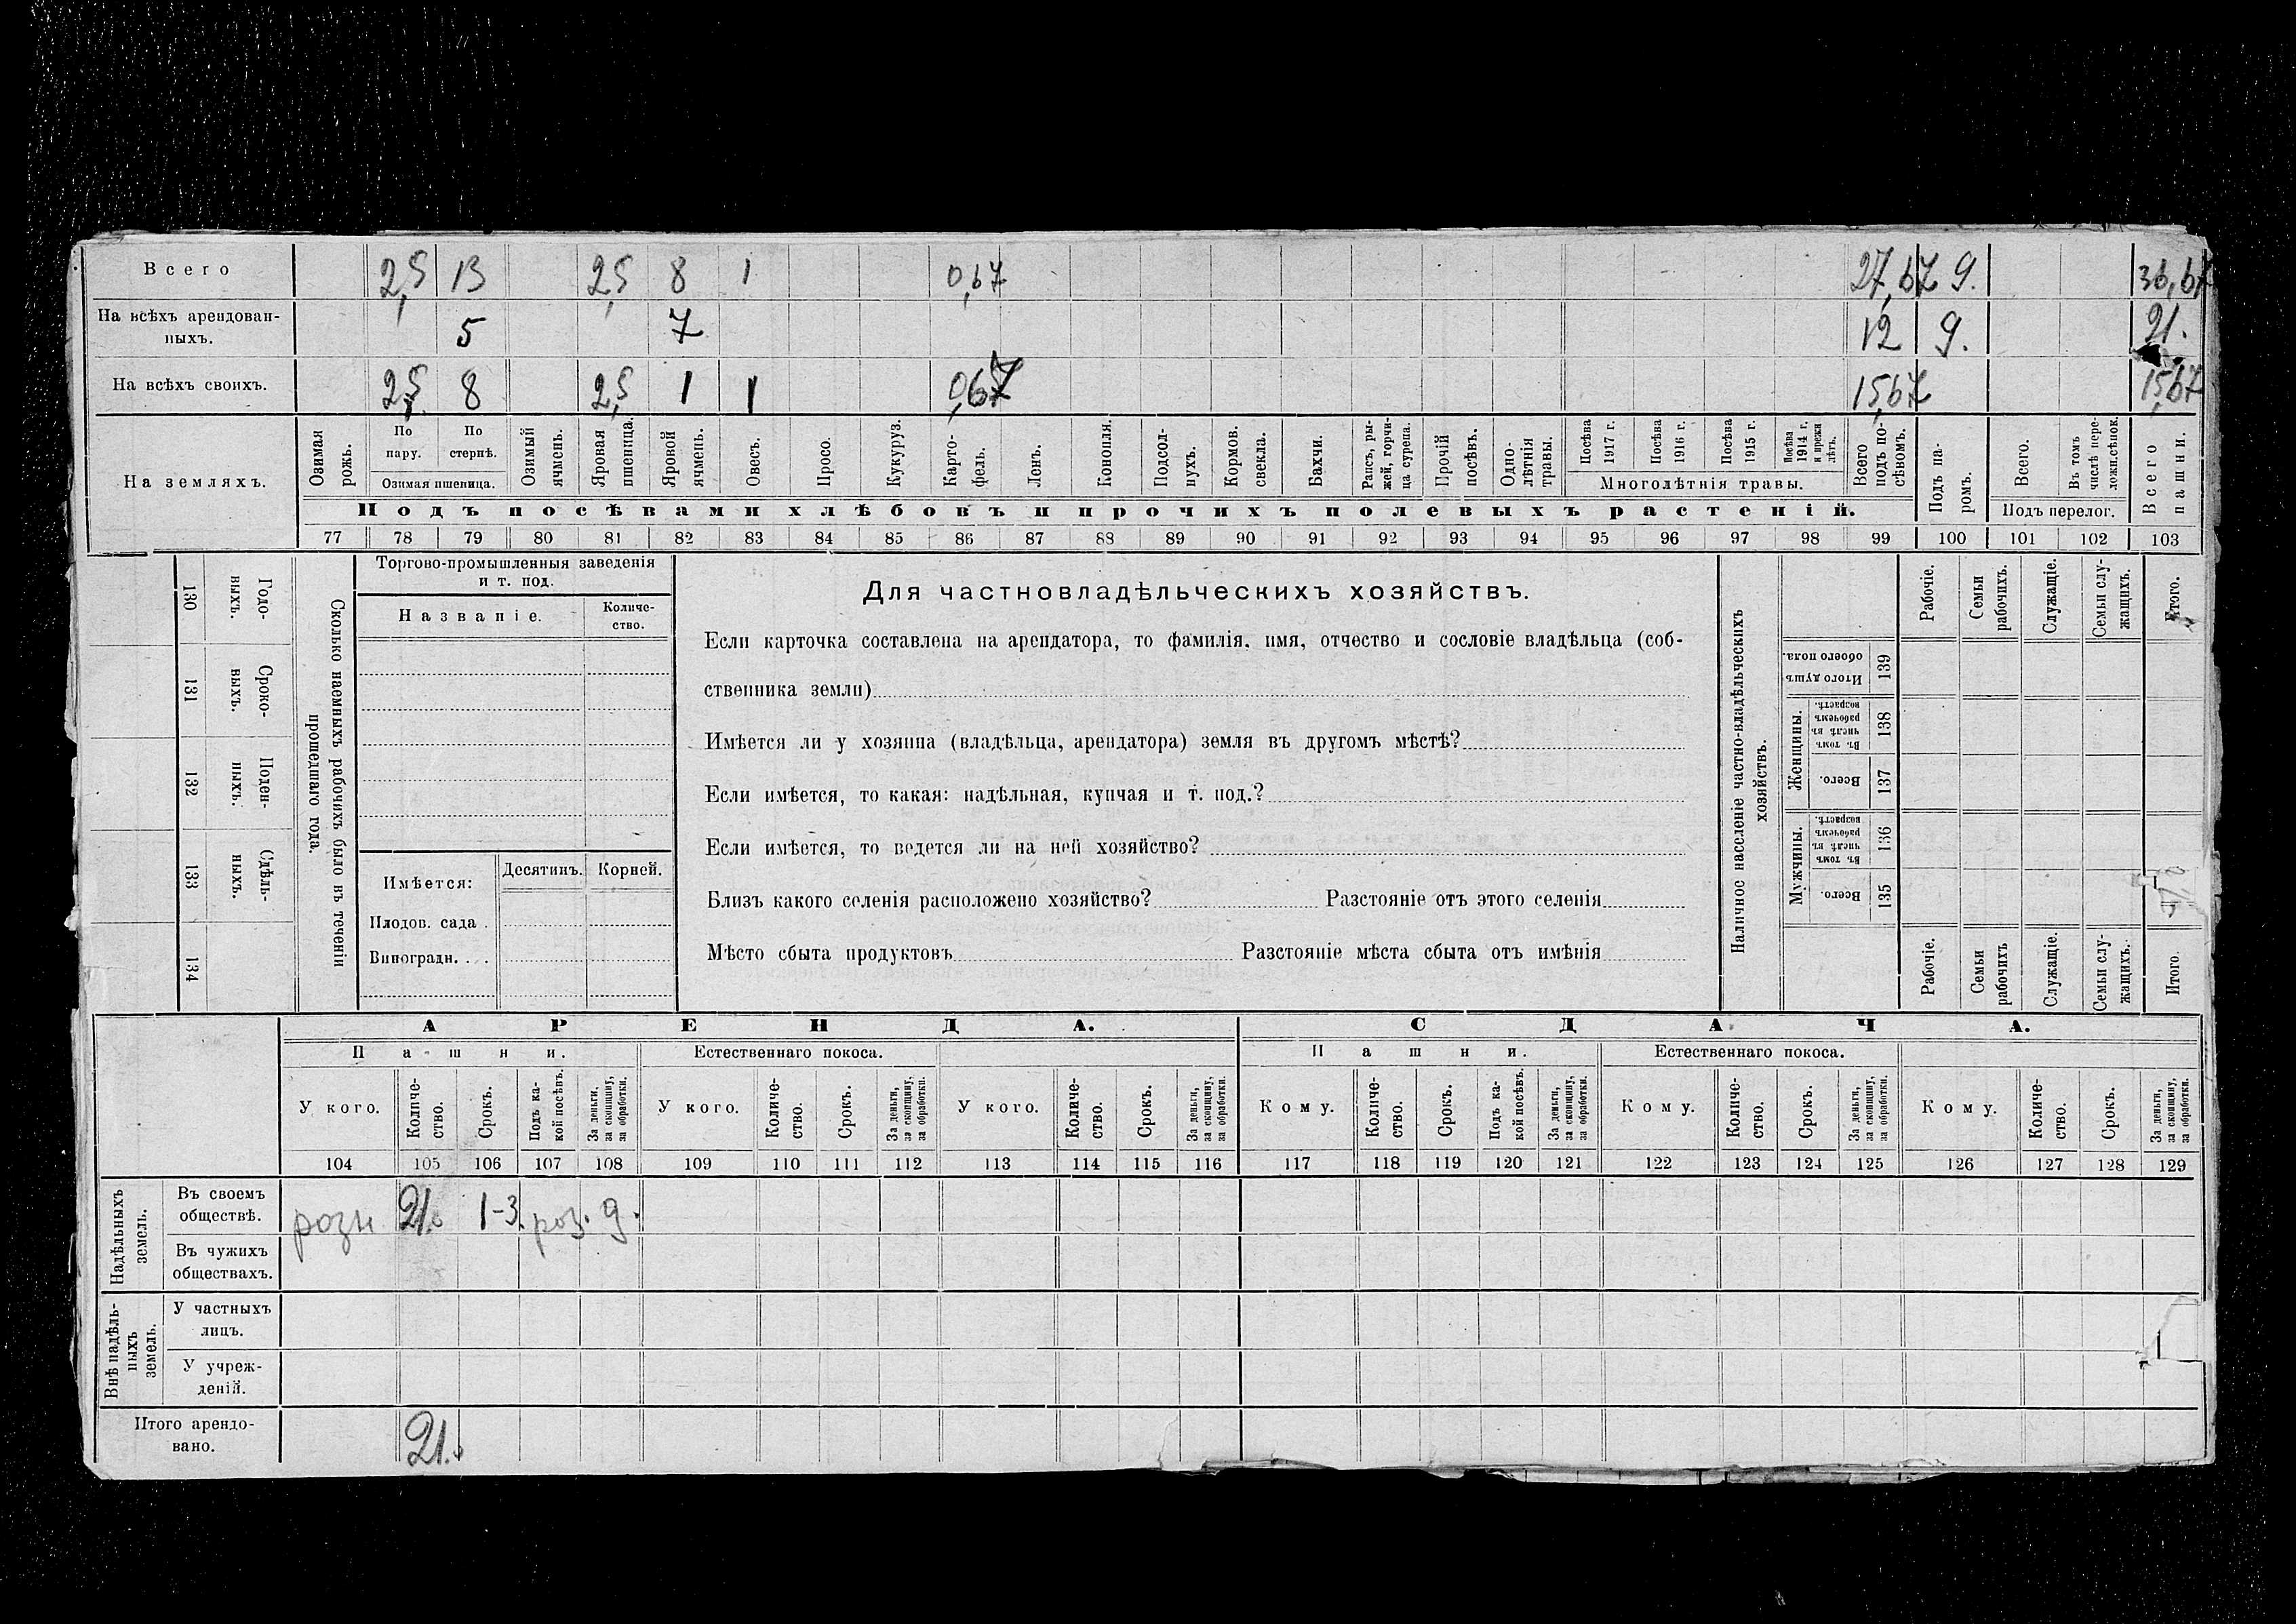 Всего 2,5 13 2,5 8 1 0,67 27,67 9. 36,67
На всѣхъ арендован- 5 7 12 9. 21.
ныхъ.
На всѣхъ своихъ. 2,5 8 2,5 1 1 0,67 15,67 15,67
На земляхъ.
Озимая рожь.
По пару.
По стернѣ.
Озимая пшеница.
Озимый ячмень.
Яровая пшеница.
Яровой ячмень.
Овесъ.
Просо.
Кукуруз.
Карто-
фель.
Ленъ.
Конопля.
Подсол-
нухъ.
Кормов.
свекла.
Бахчи.
Рапсъ, ры-
жей, горчи-
ца сурепа.
Прочій
посѣвъ.
Одно-
лѣтнія
травы.
Посѣва
1917 г.
Посѣва
1916 г.
Посѣва
1915 г.
Посѣва
1914 г.
и прежн
лѣтъ.
Многолѣтнія травы.
Всего
подъ по-
сѣвомъ.
Подъ па-
ромъ.
Всего.
Въ томъ
числѣ пере-
ложн.сѣнок.
Подъ перелог.
Всего
пашни.
Подъ посѣвами хлѣбовъ и прочихъ полевыхъ растеній.
77 78 79 80 81 82 83 84 85 86 87 88 89 90 91 92 93 94 95 96 97 98 99 100 101 102 103
130 Годо-
ныхъ.
131 Сроко-
ныхъ.
132 Поден-
ныхъ.
133 Сдѣль-
ныхъ.
134
Сколько наемныхъ рабочихъ было въ теченіи
прошедшаго года.
Торгово-промышленныя заведенія
и т. под.
Названіе.
Количе-
ство.
Имѣется:
Десятинъ.
Корней.
Плодов. сада .
Виноградн. . .
Для частновладѣльческихъ хозяйствъ.
Если карточка составлена на арендатора, то фамилія, имя, отчество и сословіе владѣльца (соб-
ственника земли)
Имѣется ли у хозяина (владѣльца, арендатора) земля въ другомъ мѣстѣ?
Если имѣется, то какая: надѣльная, купчая и т. под.?
Если имѣется, то ведется ли на ней хозяйство?
Близъ какого селенія расположено хозяйство? Разстояніе отъ этого селенія
Мѣсто сбыта продуктовъ Разстояніе мѣста сбыта отъ имѣнія
Наличное населеніе частно-владѣльческихъ
хозяйствъ.
Рабочіе.
Семьи
рабочихъ.
Служащіе.
Семьи слу-
жащихъ.
Итого.
Итого душъ
обоего пола.
139
Женщины.
Въ томъ
числѣ въ
рабочемъ
возрастѣ.
138
Всего.
137
Мужчины.
Въ томъ
числѣ въ
рабочемъ
возрастѣ.
136
Всего.
135
Рабочіе.
Семьи
рабочихъ
Служащіе.
Семьи слу-
жащихъ.
Итого.
АРЕНДА. СДАЧА.
Пашни. Естественнаго покоса. Пашни. Естественнаго покоса.
У кого.
Количе-
ство.
Срокъ.
Подъ ка-
кой посѣвъ.
За деньги,
за скопщину,
за обработки.
У кого.
Количе-
ство.
Срокъ.
За деньги,
за скопщину,
за обработки.
У кого.
Количе-
ство.
Срокъ.
За деньги,
за скопщину,
за обработки.
Кому.
Количе-
ство.
Срокъ.
Подъ ка-
кой посѣвъ.
За деньги,
за скопщину,
за обработки.
Кому.
Количе-
ство.
Срокъ.
За деньги,
за скопщину,
за обработки.
Кому.
Количе-
ство.
Срокъ.
За деньги,
за скопщину,
за обработки.
104 105 106 107 108 109 110 111 112 113 114 115 116 117 118 119 120 121 122 123 124 125 126 127 128 129
Надѣльныхъ
земель.
Въ своемъ
обществѣ.
розн 21. 1-3. роз. д.
Въ чужихъ
обществахъ.
Внѣ надѣль-
ныхъ
земель.
У частныхъ
лицъ.
У учреж-
деній.
Итого арендо-
вано.
21.